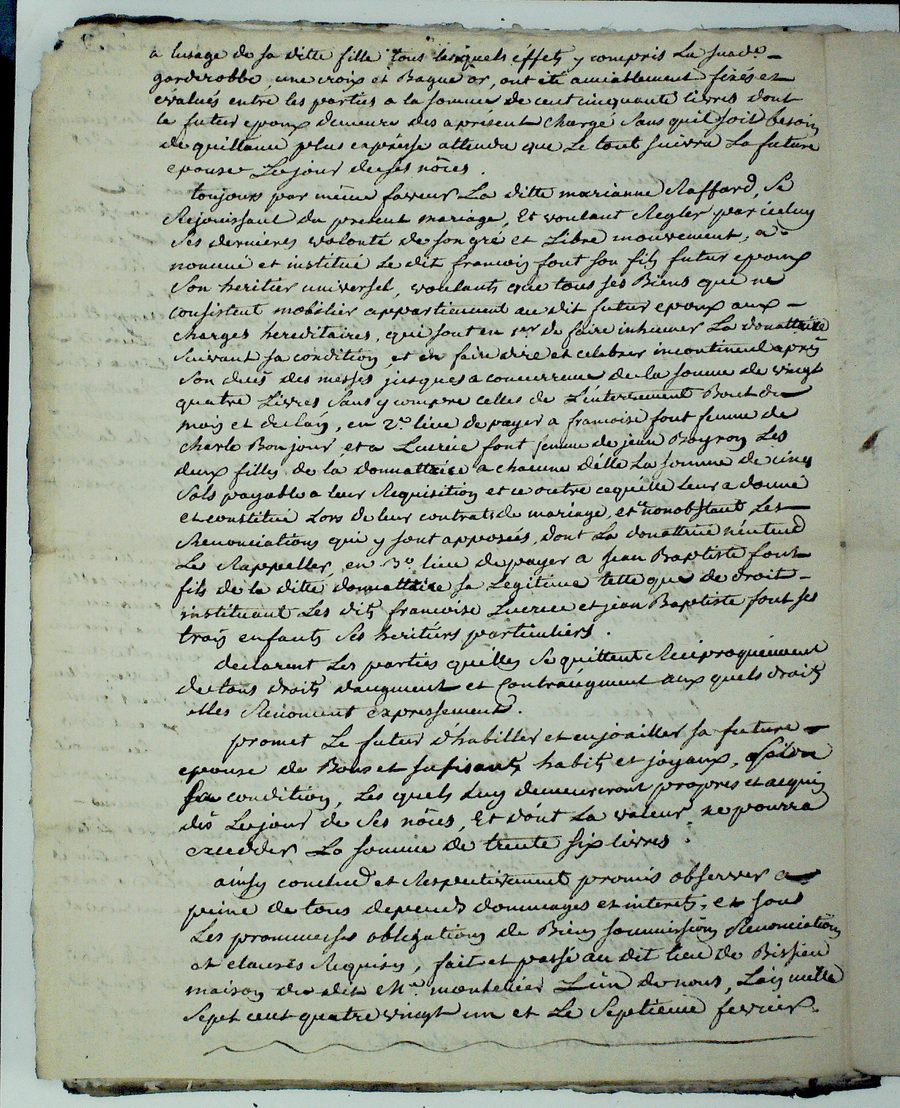 a lusage de sa ditte fille tous lesquels éffets y compris La susde -
garderobbe, une croix et Bague or, ont été amiablement fixés et
évalués entre les parties a la somme de cent cinquante livres dont
le futur epoux demeure des apresent chargé Sans quil soit besoin
de quittance plus expresse attendu que Le tout suivra La future
epouse Le jour de ses nôces.
toujours par même faveur La ditte marianne Raffard, Se
Rejouissant du present mariage, Et voulant Regler par iceluy
Ses dernières volonté de son gré et Libre mouvement, a
nommé et institué Le dit francois font son fils futur epoux
Son heritier universel, voulants que tous ses Biens que ne
consistent mobilier appartiennent au dit futur epoux aux -
charges hereditaires, qui sont en 1er de faire inhumer La donattrice
Suivant sa condition, et en faire dire et celebrer incontinent après
Son decès des messes jusques a concurrence de la somme de vingt
quatre Livres Sans y compre celles de L'enterrement Bout du
mois et de Lan, en 2e lieu de payer a francoise font femme de
Charle Bonjour, et a Lucrèce font femme de jean Boyron Les
deux filles de la donnattrice a chacune d'elle La somme de cinq
Sols payable a leur Requisition et ce outre ce qu'elle leur a donné
et constitué Lors de leur contrats de mariage, et nonobstant Les
Renonciations qui y sont apposées, dont La donattrice n'entend
Les Rappeller, en 3e lieu de payer a jean Baptiste font
fils de la ditte donnattrice sa Legitime telle que de droit -
instituant Les dits francoise Lucrece et jean Baptiste font ses
trois enfants Ses heritiers particuliers.
declarent Les parties quelles Se quittent Réciproquement
de tous droits daugment et Contraugment aux quels droits
elles Renoncent expressement.
promet Le futur d'habiller et enjoailler sa future
epouse de Bons et sufisants habits et joyaux, Selon
Sa condition, Les quels Luy demeureront propres et acquis
dès Le jour de Ses nôces, Et dont La valeur ne pourra
exedder La somme de trente six livres.
ainsy conclud et Respectivement promis observer a
peine de tous depends dommages et interets, et sous
Les prommesses obligations de Biens soummissions Renonciations
et clauses Requises, fait et passé au dit lieu de Bissieu
maison du dit Me montelier L'un de nous, L'an mille
Sept cent quatre vingt un et Le Septieme fevrier.